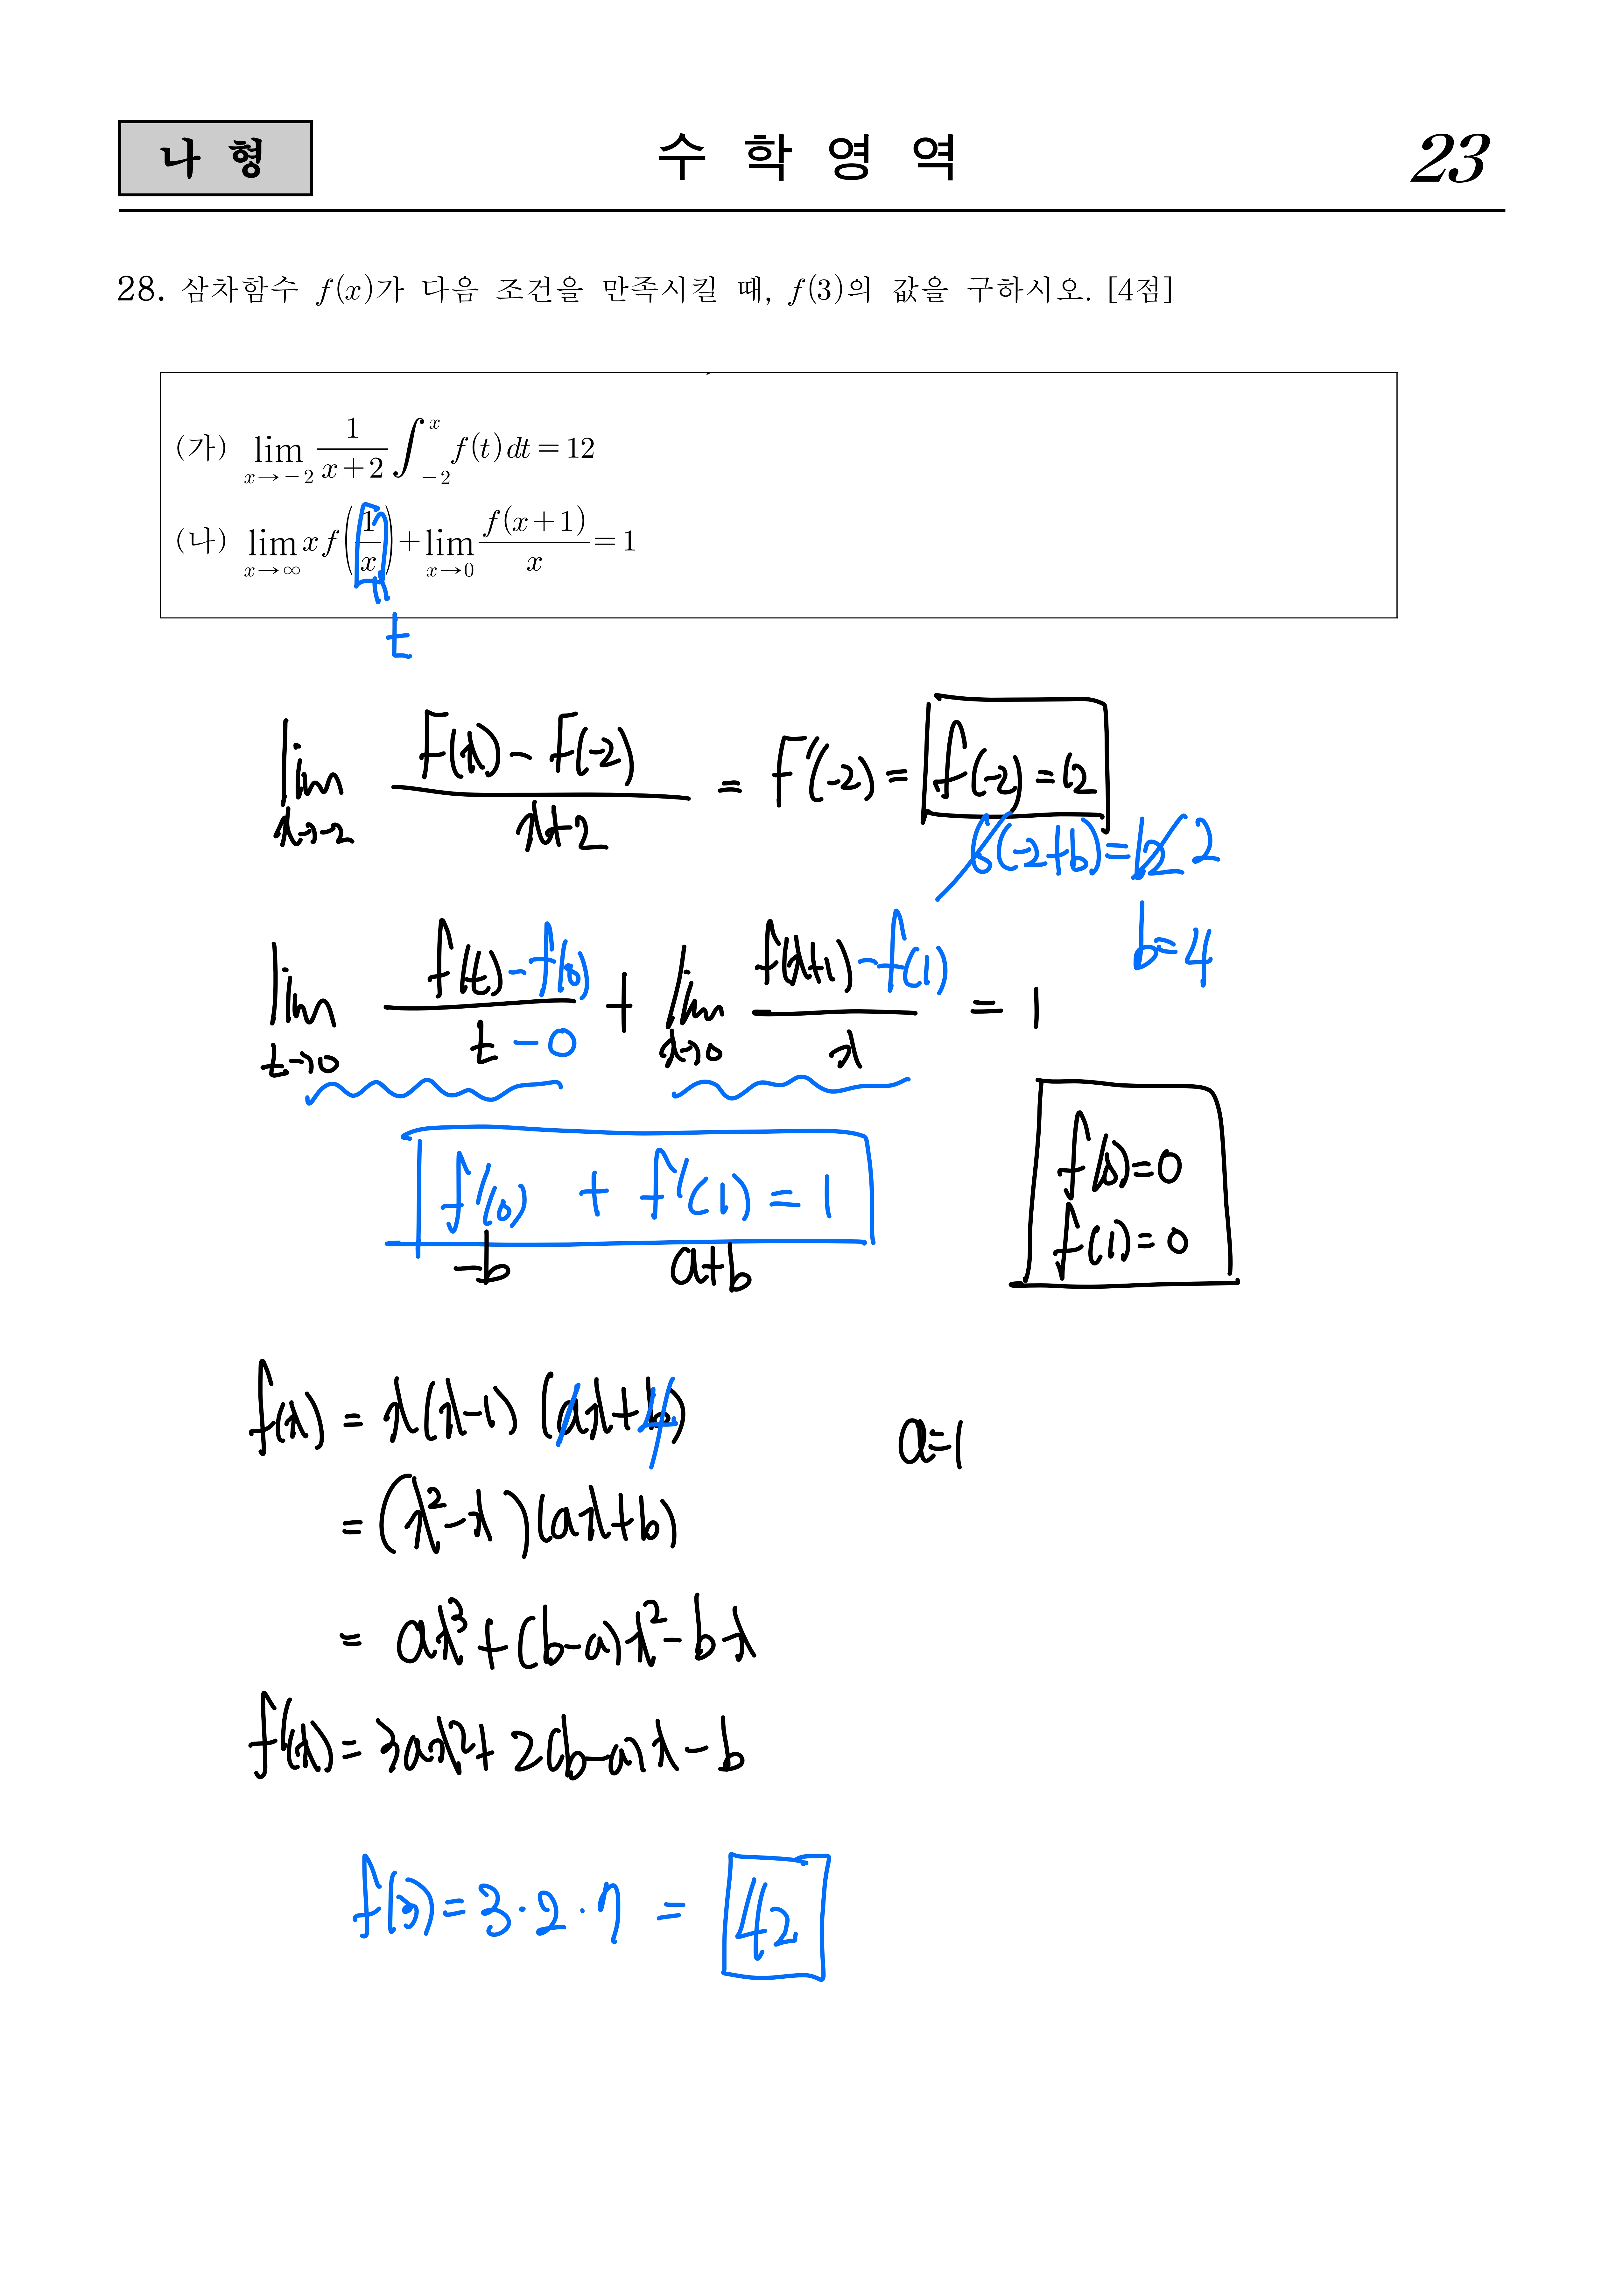 나 형
수 학 영 역
23
28. 삼차함수 f(x)가 다음 조건을 만족시킬 때, f(3)의 값을 구하시오. [4점]
(가) lim_{x→-2} 1/(x+2) ∫_{-2}^{x} f(t)dt = 12
(나) lim_{x→∞} x f(1/x) + lim_{x→0} f(x+1)/x = 1
t
lim_{x→-2} (F(x)-F(-2))/(x+2) = F'(-2) = f(-2) = 12
6(-2+b) = 12 2
b=4
lim_{t→0} (f(t)-f(0))/(t-0) + lim_{x→0} (f(x+1)-f(1))/x = 1
f'(0) + f'(1) = 1
-b a+b
f(0)=0
f(1)=0
f(x) = x(x-1)(ax+b) 4
a=1
= (x²-x)(ax+b)
= ax³+(b-a)x²-bx
f'(x) = 3ax²+2(b-a)x-b
f(3) = 3·2·7 = 42